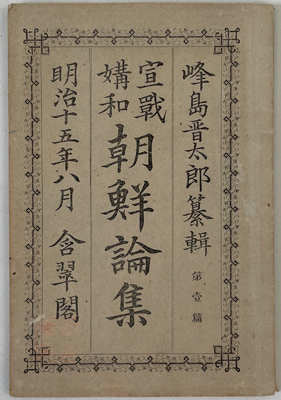 峰島晋太郎纂輯
第壹篇
宣戰
媾和
朝鮮論集
明治十五年八月
含翠閣